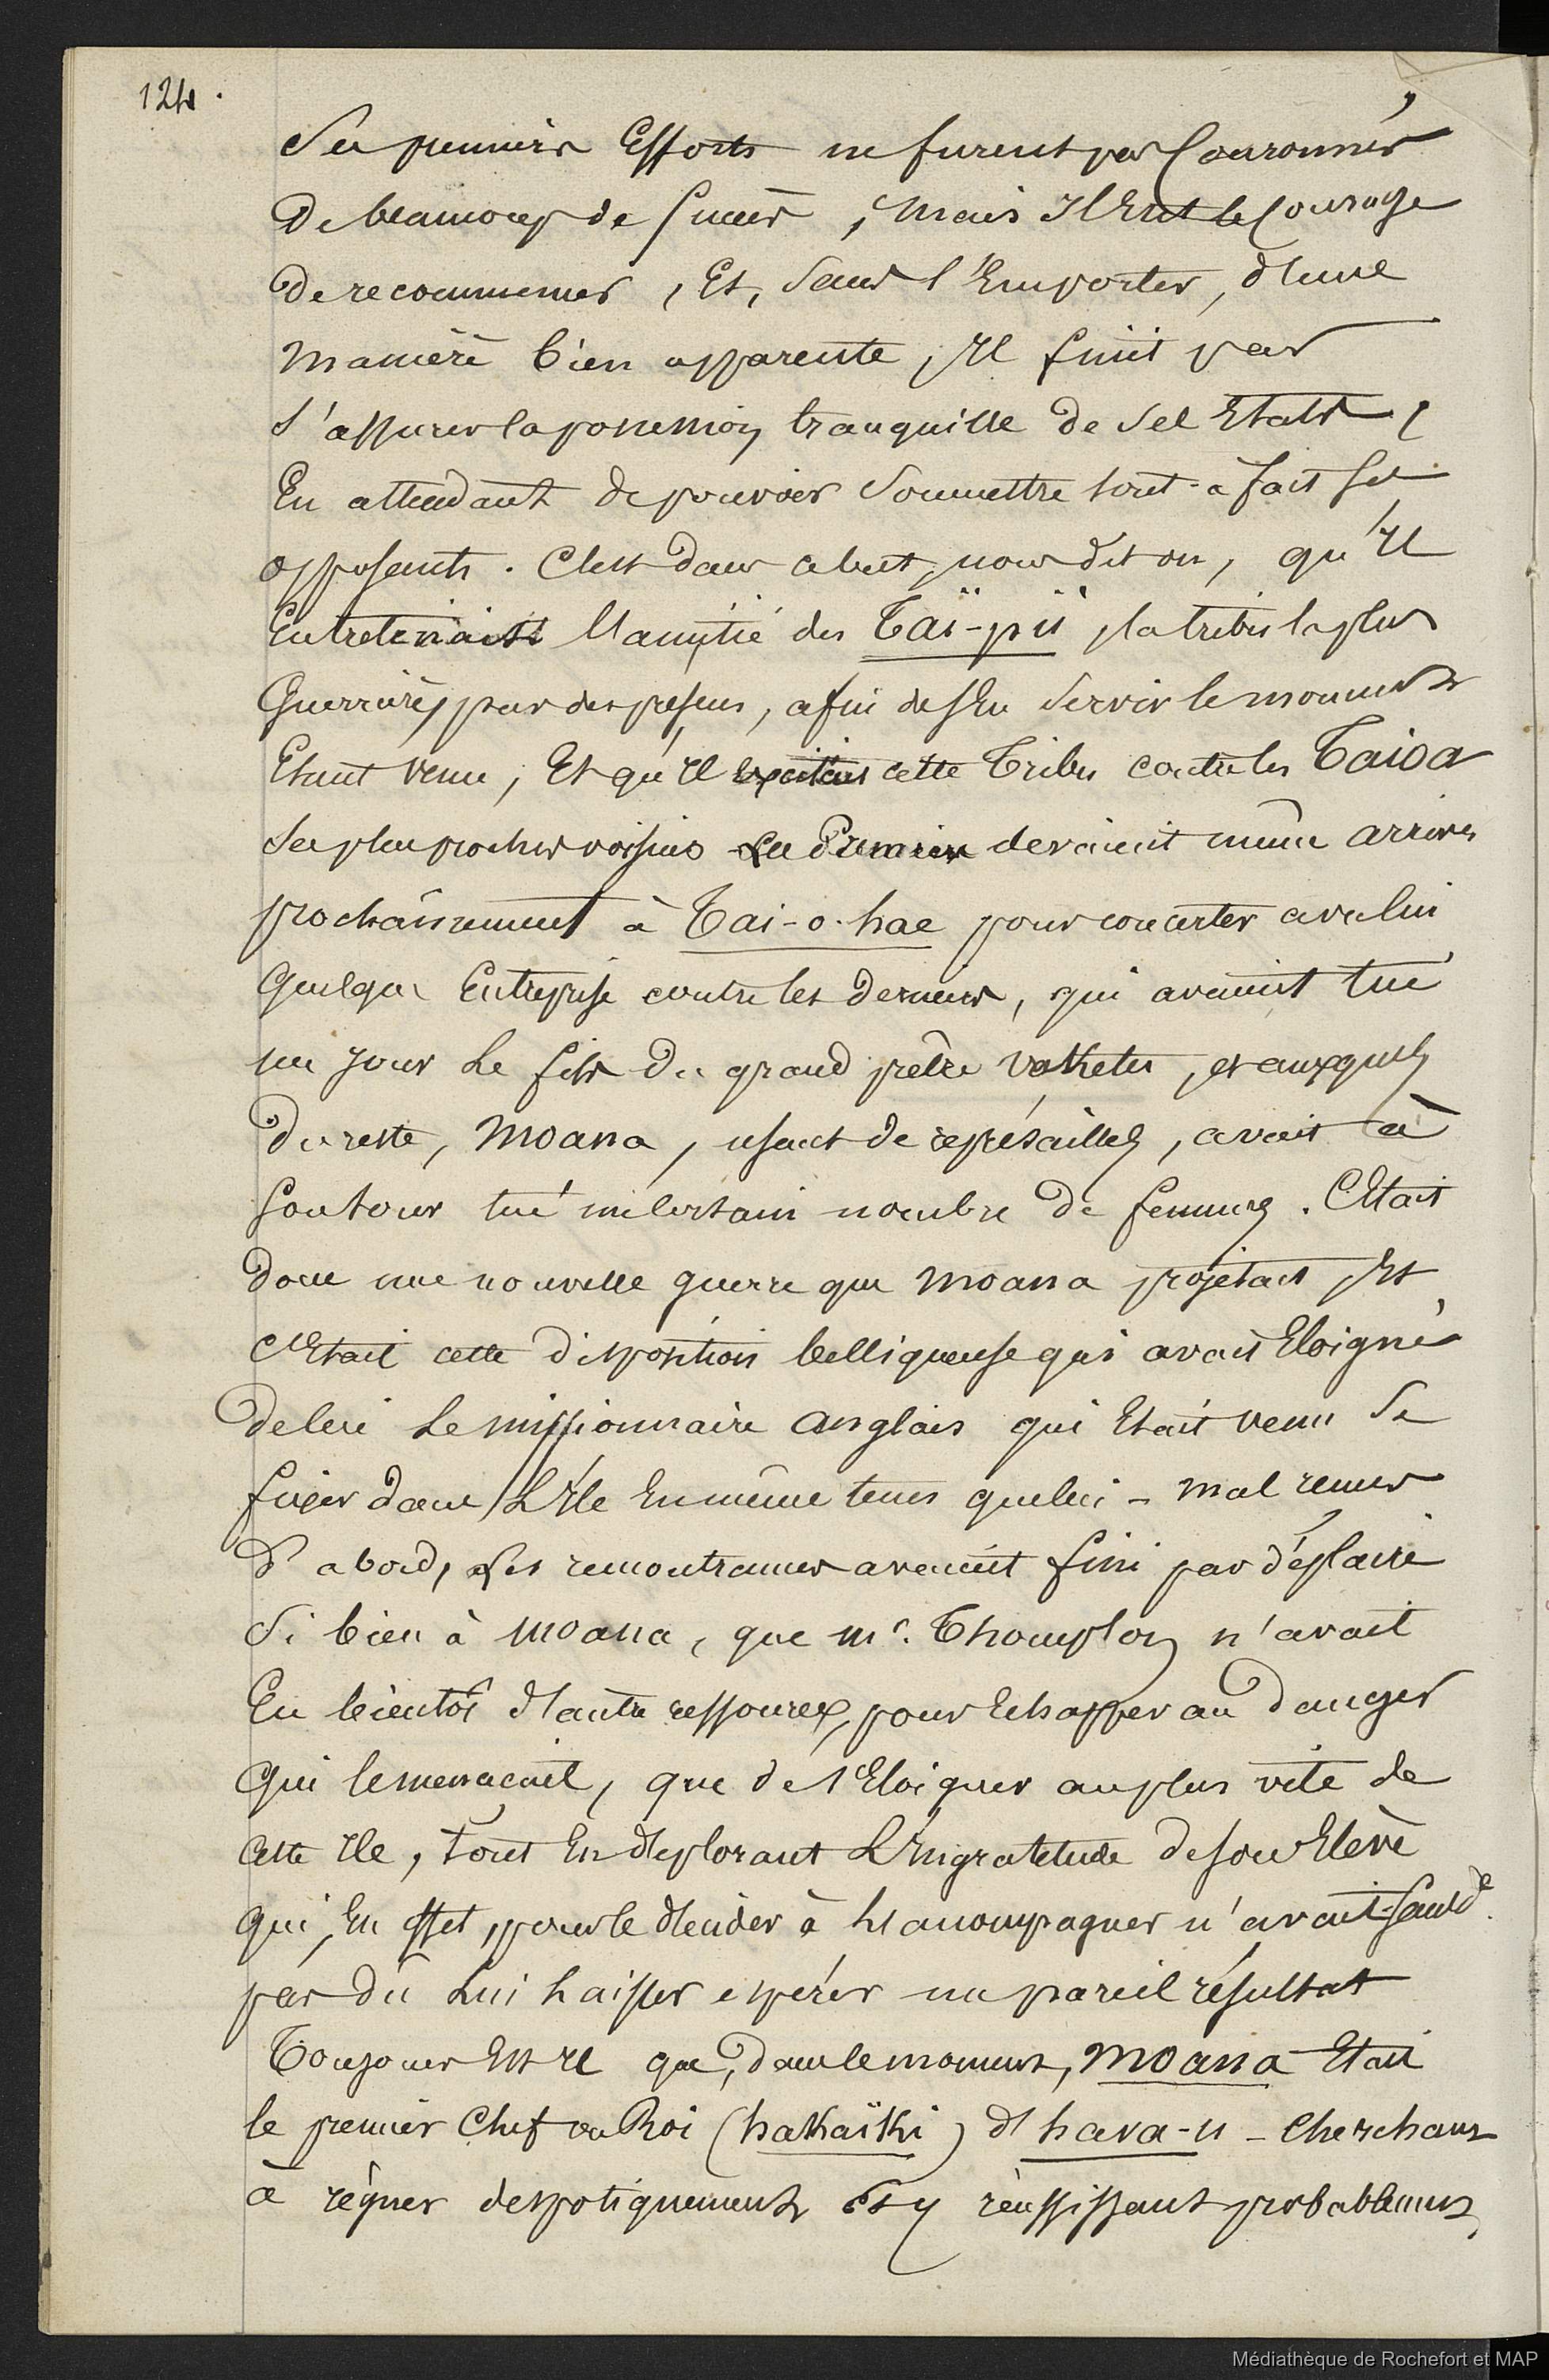 124.
Ses premiers Efforts ne furent pas Couronnés
De beaucoup de succès, mais Il Eut le Courage
De recommencer, Et, sans l'Emporter, d'une
manière bien apparente, Il finit par
s'assurer la possession tranquille de ses Etats,
En attendant de pouvoir soumettre tout-à fait ses
opposants. C'est dans ce but, nous dit on, qu'Il
Entretenait l'amitié des Taï-piï, la tribu la plus
Guerrière, par des presens, afin de s'En servir le moment
Etant venu, Et qu'Il excitait cette Tribu contre les Taioa
ses plus proches voisins. Les Premiers devaient même arriver
prochainement à Tai-o-hae pour concerter avec lui
quelque Entreprise contre les derniers, qui avaient tué
un jour le fils du grand prêtre Vaketu, et auxquels
Du reste, Moana, usant de représailles, avait à
son tour tué un certain nombre de femmes. C'était
donc une nouvelle guerre que Moana projetait, Et
c'Etait cette disposition belliqueuse qui avait Eloigné
de lui le missionnaire Anglais qui Etait venu se
fixer dans L'Ile En même tems que lui - mal venues
d'abord, ses remontrances avaient fini par déplaire
si bien à Moana, que Mr. Thompson n'avait
Eu bientôt d'autre ressource, pour Echapper au danger
qui le menacait, que de s'Eloigner au plus vite de
cette Ile, tout En deplorant L'Ingratitude de son Elève
qui, En effet, pour le decider à l'accompagner n'avait sans de
pas dû lui laisser espérer un pareil résultat
Toujours Est Il que, dans le moment, Moana Etait
le premier Chef ou Roi (hakaïki) d'hava-u - Cherchant
à régner despotiquement Et y réussissant probablement,
Médiathèque de Rochefort et MAP